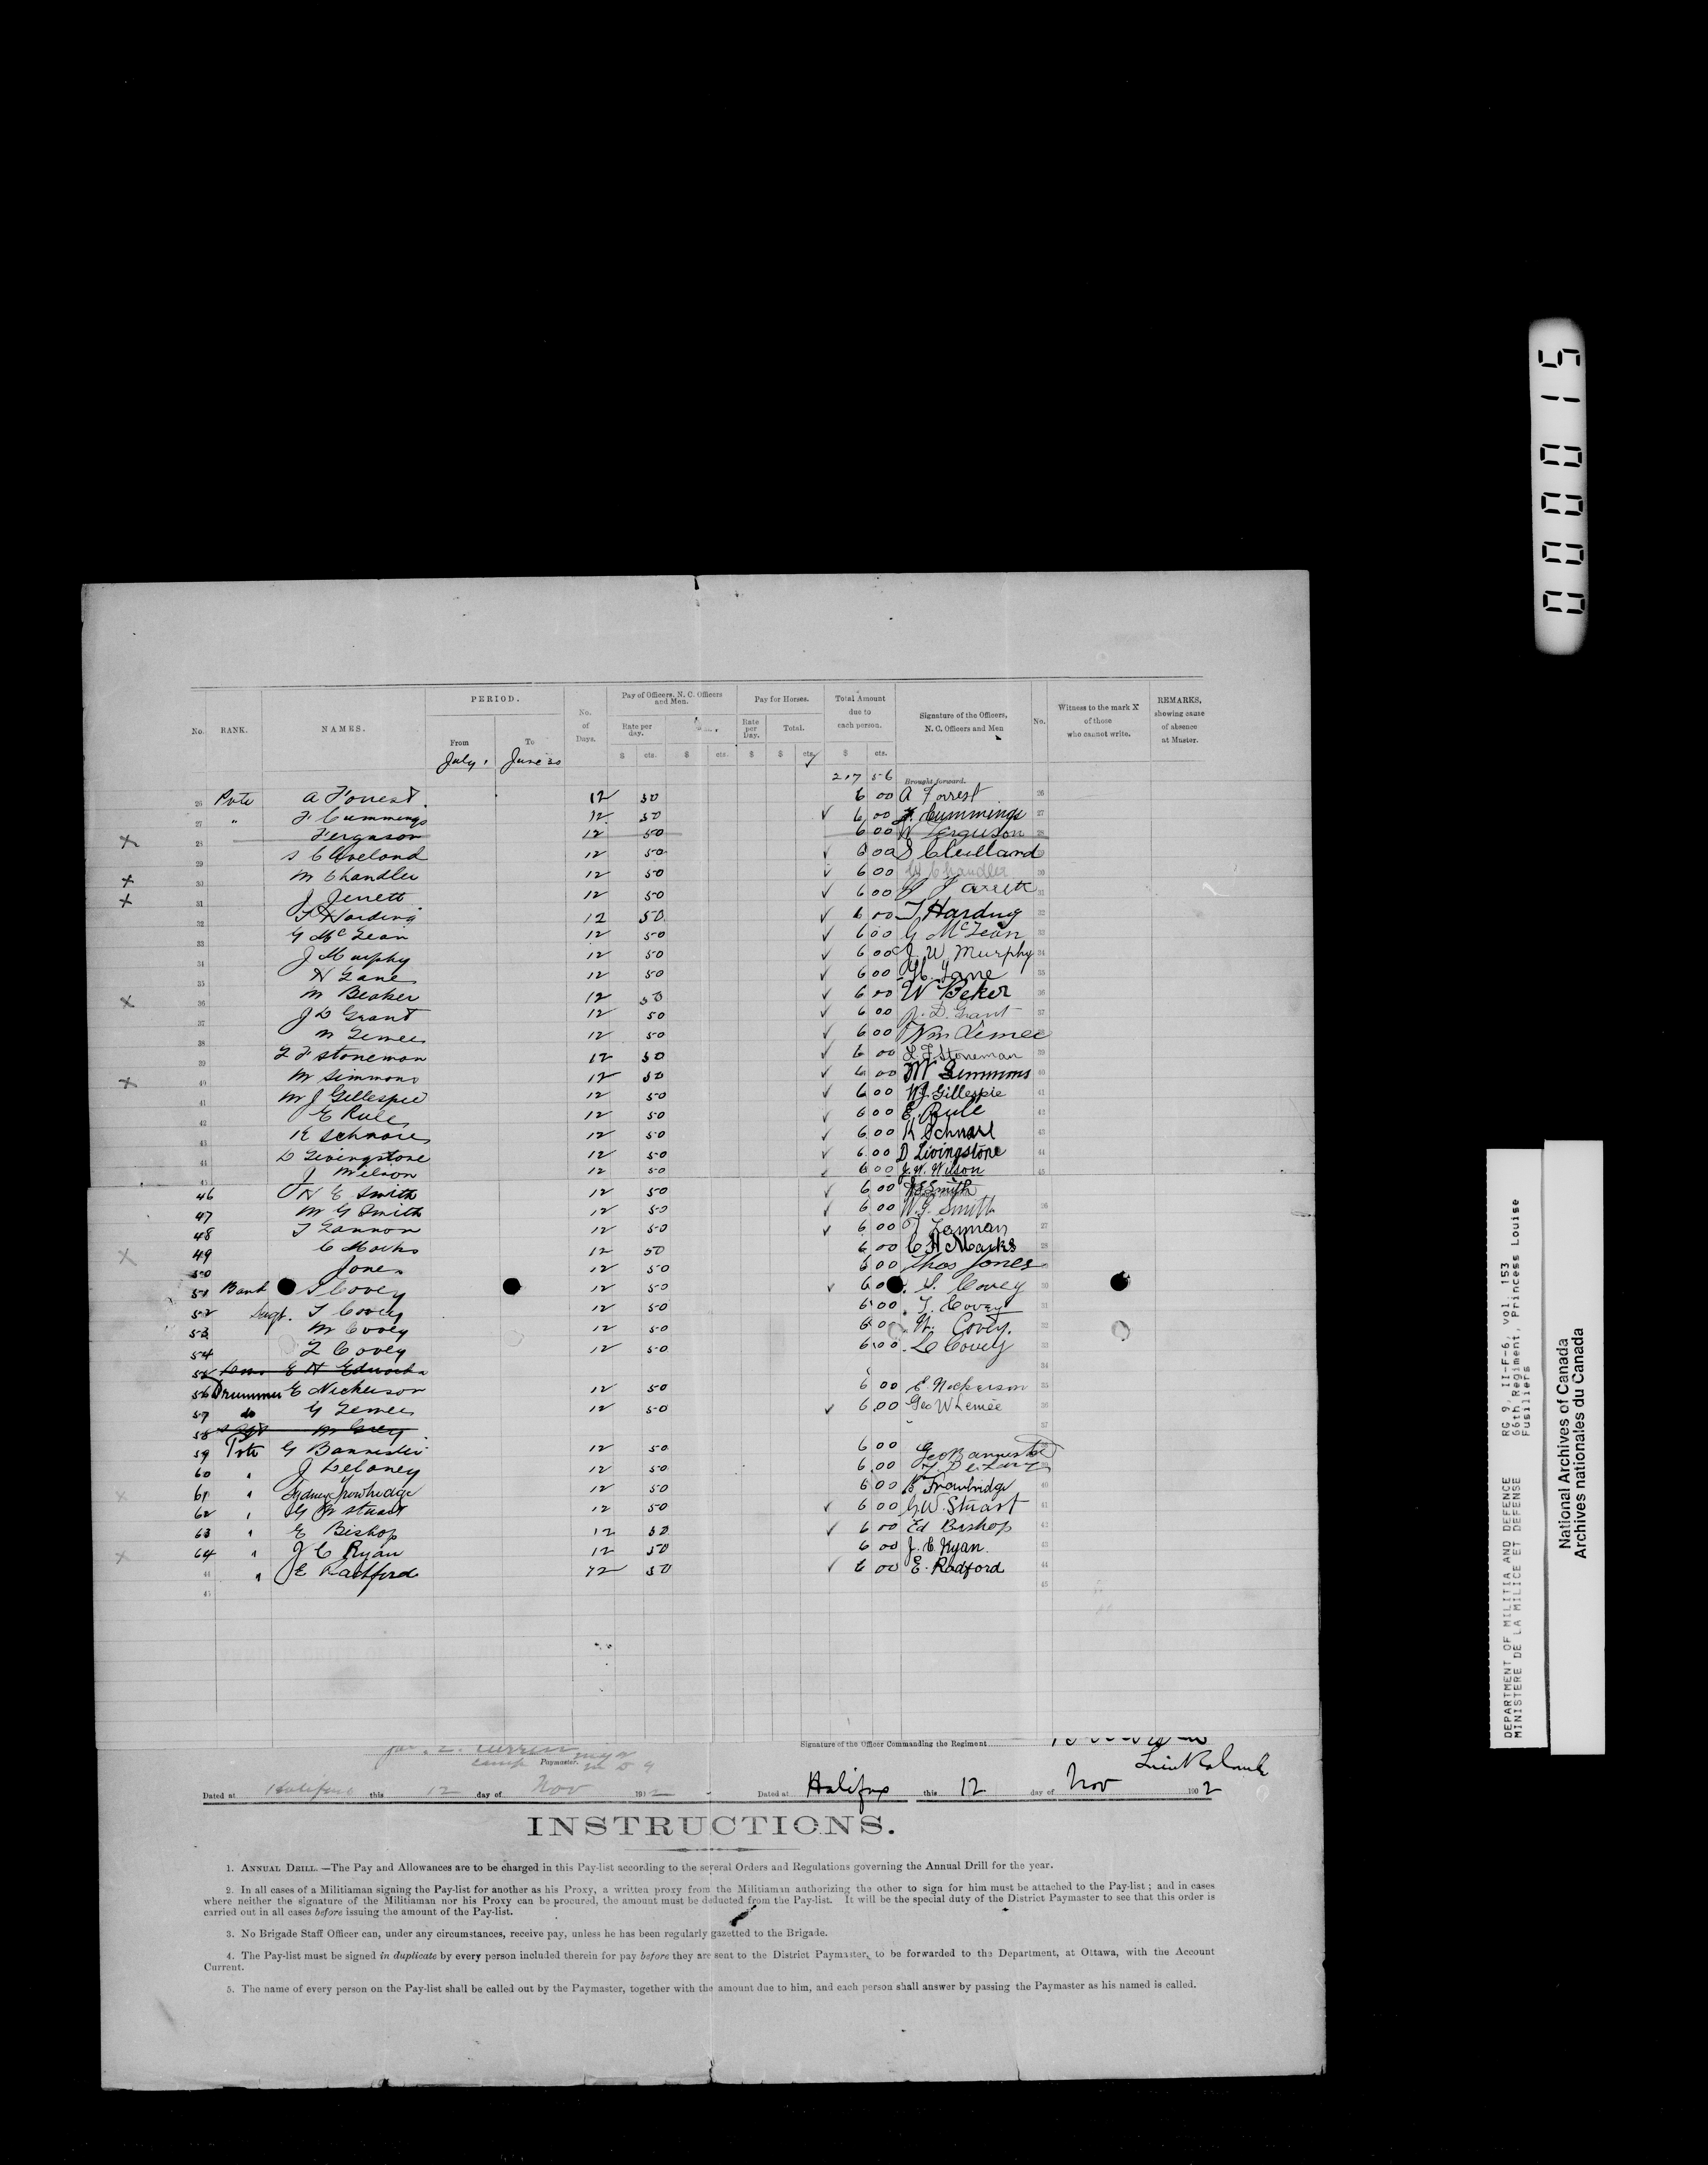 00015
PERIOD.
Pay of Officers, N. C. Officers and Men.
Pay for Horses.
Total Amount due to each person.
No. RANK. NAMES. From To No. of Days. Rate per day. Rate per Day. Total. Signature of the Officers, N. C. Officers and Men No. Witness to the mark X of those who cannot write. REMARKS, showing cause of absence at Muster.
$ cts. $ cts. $ $ cts. $ cts.
July 1 June 30
217 56 Brought forward.
26 Pvte A Forrest 12 50 6 00 A Forrest 26
27 " F Cummings 12 50 ✓ 6 00 F. Cummings 27
X 28 Ferguson 12 50 6 00 W Ferguson 28
29 S Cleveland 12 50 ✓ 6 00 S 29
X 30 W Chandler 12 50 ✓ 6 00 W Chandler 30
X 31 J Jerrett 12 50 ✓ 6 00 J Jarrett 31
32 T Harding 12 50 ✓ 6 00 T Harding 32
33 G McLean 12 50 ✓ 6 00 G McLean 33
34 J Murphy 12 50 ✓ 6 00 J. W. Murphy 34
35 H Lane 12 50 ✓ 6 00 H. Lane 35
X 36 W Beaker 12 50 ✓ 6 00 W Beker 36
37 J D Grant 12 50 ✓ 6 00 J. D. Grant 37
38 W Lemee 12 50 ✓ 6 00 Wm Lemee 38
39 L F Stoneman 12 50 ✓ 6 00 L. F. Stoneman 39
X 40 W Simmons 12 50 ✓ 6 00 W Simmons 40
41 W J Gillespie 12 50 ✓ 6 00 W J. Gillespie 41
42 E Rule 12 50 ✓ 6 00 E. Rule 42
43 K Schnare 12 50 ✓ 6 00 K Schnarl 43
44 D Livingstone 12 50 ✓ 6 00 D Livingstone 44
45 J Wilson 12 50 ✓ 6 00 J. W. Wilson 45
46 H E Smith 12 50 ✓ 6 00 H E Smith
47 W G Smith 12 50 ✓ 6 00 W. G. Smith 26
48 T Lannon 12 50 ✓ 6 00 T Lannon 27
X 49 C Marks 12 50 6 00 C H Marks 28
50 Jones 12 50 6 00 Thos Jones
51 Band S Covey 12 50 ✓ 6 00 S. Covey 30
52 Sergt. T Covey 12 50 6 00 T. Covey 31
53 W Covey 12 50 6 00 W. Covey. 32
54 L Covey 12 50 6 00 L Covey 33
55 E H Edwards 34
56 Drummer E Nickerson 12 50 6 00 E. Nickerson 35
57 do G Lemee 12 50 ✓ 6 00 Geo W Lemée 36
58 Sgt W Grey 37
59 Pvte G Bannister 12 50 6 00 Geo Bannister
60 " J Delaney 12 50 6 00
X 61 " Sydney Trowbridge 12 50 6 00 S Trowbridge 40
62 " G W Stuart 12 50 ✓ 6 00 G. W. Stuart 41
63 " E Bishop 12 50 ✓ 6 00 Ed Bishop 42
X 64 " J C Ryan 12 50 6 00 J. C. Ryan. 43
44 " E Radford 12 50 ✓ 6 00 E. Radford 44
45 45
Signature of the Officer Commanding the Regiment
Paymaster. M D 9
Dated at Halifax this 12 day of Nov 1902
Dated at Halifax this 12 day of Nov 1902
INSTRUCTIONS.
1. ANNUAL DRILL.—The Pay and Allowances are to be charged in this Pay-list according to the several Orders and Regulations governing the Annual Drill for the year.
2. In all cases of a Militiaman signing the Pay-list for another as his Proxy, a written proxy from the Militiaman authorizing the other to sign for him must be attached to the Pay-list; and in cases
where neither the signature of the Militiaman nor his Proxy can be procured, the amount must be deducted from the Pay-list. It will be the special duty of the District Paymaster to see that this order is
carried out in all cases before issuing the amount of the Pay-list.
3. No Brigade Staff Officer can, under any circumstances, receive pay, unless he has been regularly gazetted to the Brigade.
4. The Pay-list must be signed in duplicate by every person included therein for pay before they are sent to the District Paymaster, to be forwarded to the Department, at Ottawa, with the Account
Current.
5. The name of every person on the Pay-list shall be called out by the Paymaster, together with the amount due to him, and each person shall answer by passing the Paymaster as his named is called.
DEPARTMENT OF MILITIA AND DEFENCE RG 9, II-F-6, vol. 153
MINISTERE DE LA MILICE ET DEFENSE 66th Regiment, Princess Louise
Fusiliers
National Archives of Canada
Archives nationales du Canada